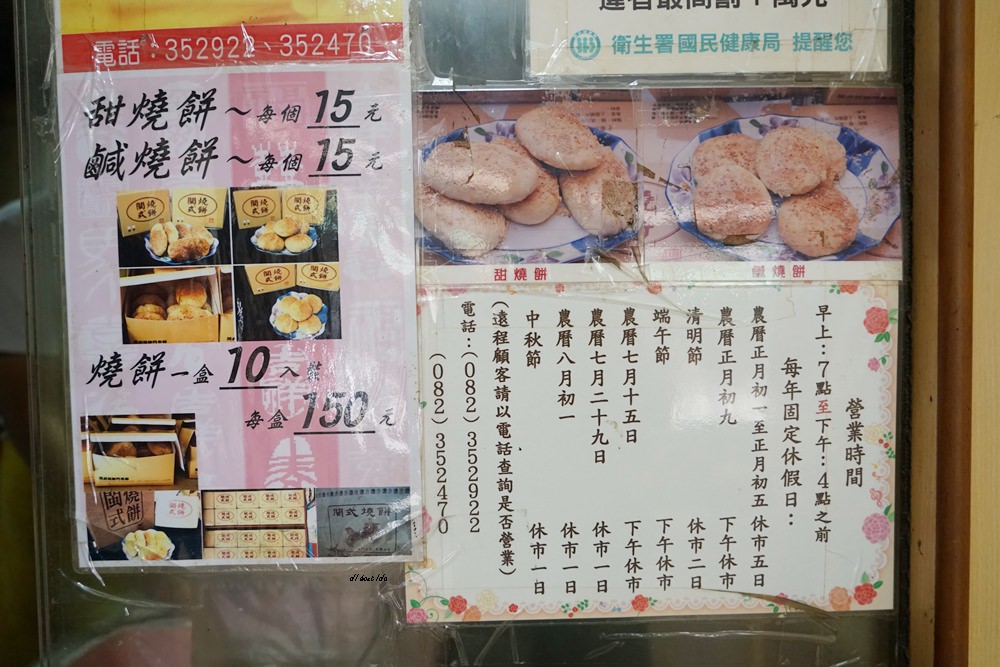 電話：352922、352470
甜燒餅～每個15元
鹹燒餅～每個15元
閩式燒餅
閩式燒餅
閩式燒餅
閩式燒餅
閩式燒餅
閩式燒餅
燒餅一盒10入裝
每盒150元
閩式燒餅
閩式燒餅
衛生署國民健康局 提醒您
甜燒餅
鹹燒餅
營業時間
早上：7點至下午：4點之前
每年固定休假日：
農曆正月初一至正月初五 休市五日
農曆正月初九 下午休市
清明節 休市二日
端午節 下午休市
農曆七月十五日 下午休市
農曆七月二十九日 休市一日
農曆八月初一 休市一日
中秋節 休市一日
(遠程顧客請以電話查詢是否營業)
電話：(082) 352922
(082) 352470